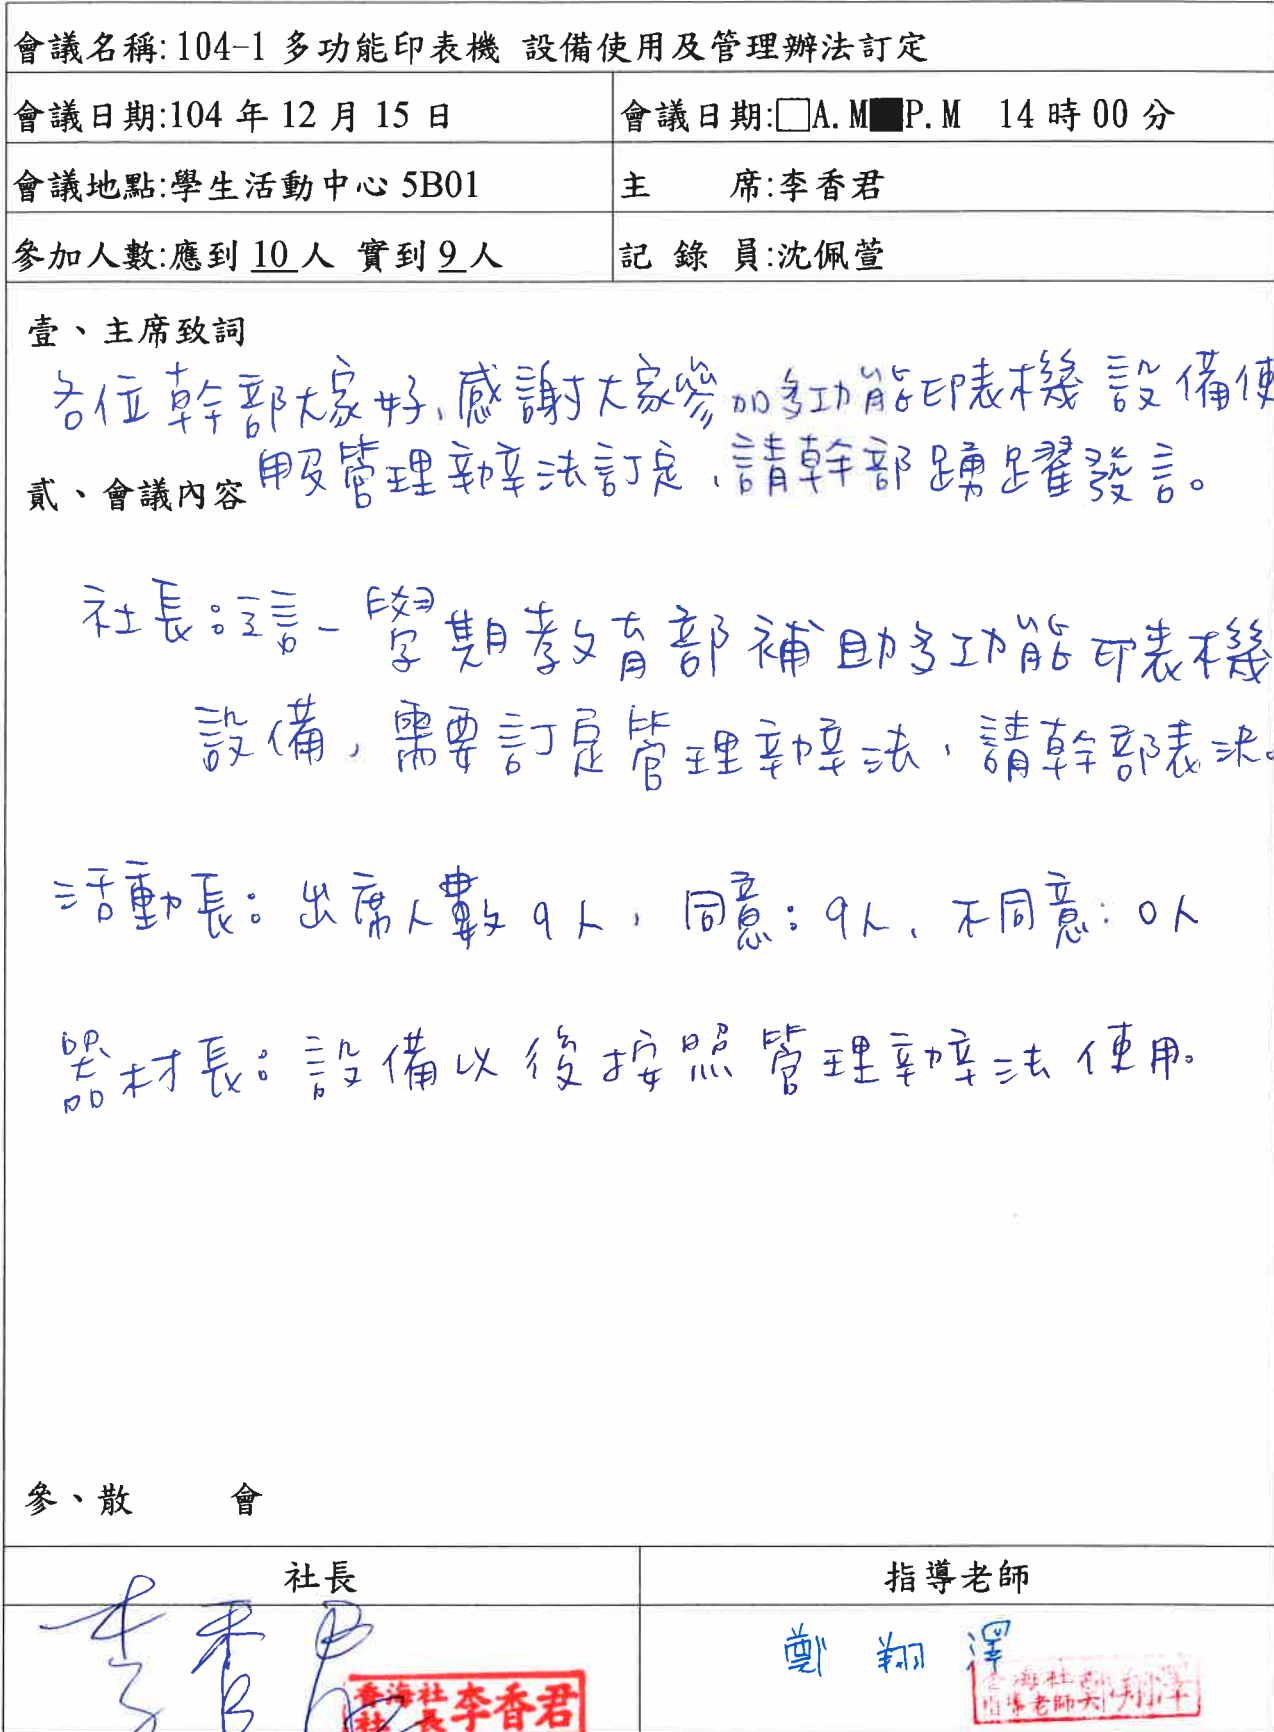 會議名稱:104-1 多功能印表機 設備使用及管理辦法訂定
會議日期:104 年 12 月 15 日
會議日期:□A.M■P.M 14 時 00 分
會議地點:學生活動中心 5B01
主 席:李香君
參加人數:應到 10 人 實到 9 人
記 錄 員:沈佩萱
壹、主席致詞
各位幹部大家好,感謝大家參加多功能印表機設備使
用及管理辦法訂定,請幹部踴躍發言。
貳、會議內容
社長:這一學期教育部補助多功能印表機
設備,需要訂定管理辦法,請幹部表決。
活動長:出席人數9人,同意:9人、不同意:0人
器材長:設備以後按照管理辦法使用。
參、散 會
社長
指導老師
李香君
鄭翔澤
社長 李香君
海社 指導老師 鄭翔澤